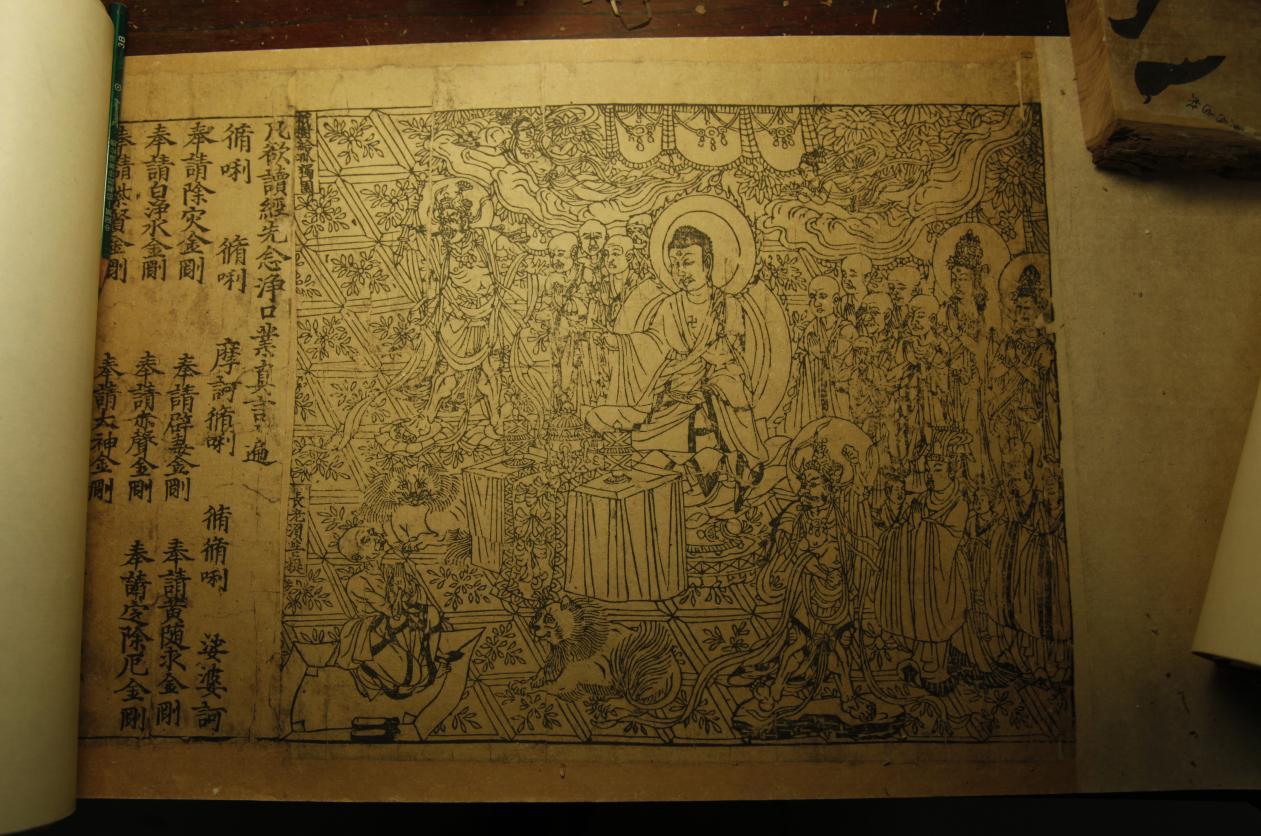 祇樹給孤獨園
長老須菩提
凡欲讀經先念淨口業真言一遍
脩唎 脩唎 摩訶脩唎 脩脩唎 娑婆訶
奉請除灾金剛 奉請辟毒金剛 奉請黃随求金剛
奉請白淨水金剛 奉請赤聲金剛 奉請定除厄金剛
奉請紫賢金剛 奉請大神金剛
3B